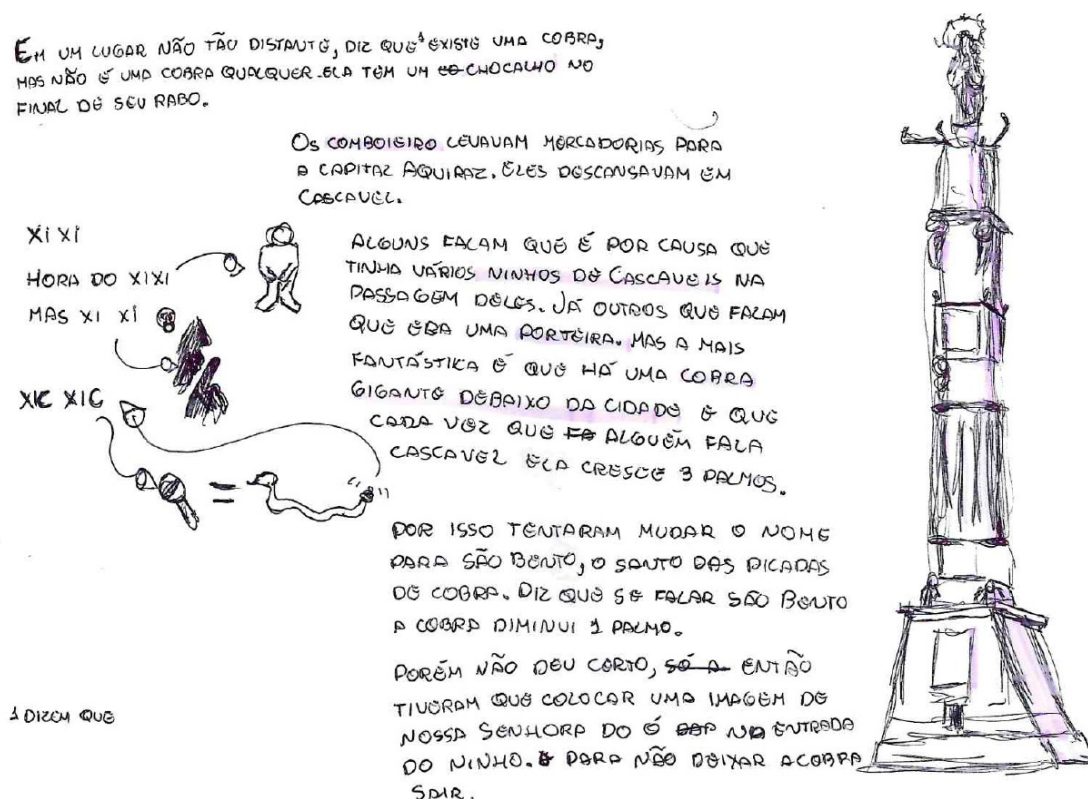 EM UM LUGAR NÃO TÃO DISTANTE, DIZ QUE¹ EXISTE UMA COBRA,
MAS NÃO É UMA COBRA QUALQUER. ELA TEM UM CHOCALHO NO
FINAL DE SEU RABO.
OS COMBOIEIRO LEVAVAM MERCADORIAS PARA
A CAPITAL AQUIRAZ. ELES DESCANSAVAM EM
CASCAVEL.
XI XI
HORA DO XIXI
MAS XI XI
XIC XIC
=
ALGUNS FALAM QUE É POR CAUSA QUE
TINHA VÁRIOS NINHOS DE CASCAVEIS NA
PASSAGEM DELES. JÁ OUTROS QUE FALAM
QUE ERA UMA PORTEIRA. MAS A MAIS
FANTÁSTIKA É QUE HÁ UMA COBRA
GIGANTE DEBAIXO DA CIDADE E QUE
CADA VEZ QUE FA ALGUÉM FALA
CASCAVEL ELA CRESCE 3 PALMOS.
POR ISSO TENTARAM MUDAR O NOME
PARA SÃO BENTO, O SANTO DAS PICADAS
DE COBRA. DIZ QUE SE FALAR SÃO BENTO
A COBRA DIMINUI 1 PALMO.
PORÉM NÃO DEU CERTO, SÓ A ENTÃO
TIVERAM QUE COLOCAR UMA IMAGEM DE
NOSSA SENHORA DO Ó NA ENTRADA
DO NINHO. PARA NÃO DEIXAR A COBRA
SAIR.
1 DIZEM QUE